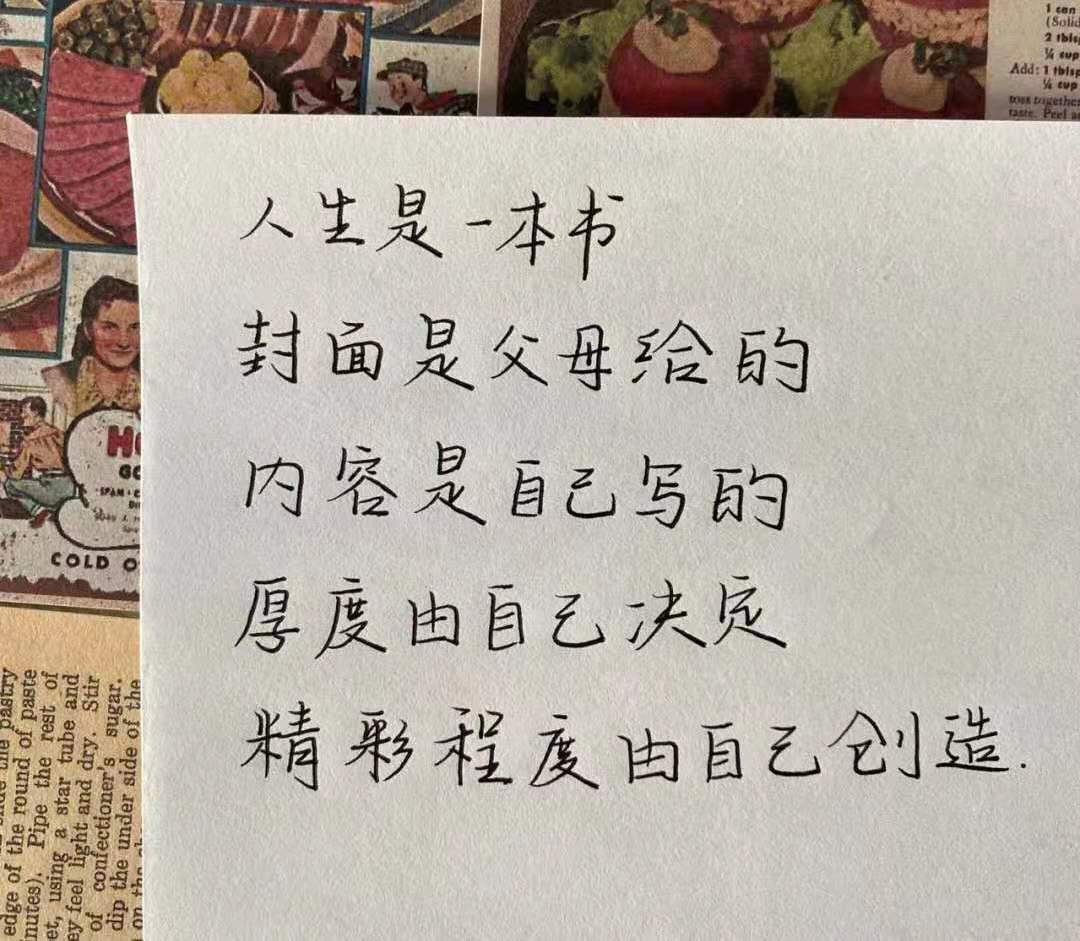 1 can
(Solid
2 tbls
¼ cup
Add: 1 tbsp
¼ cup
toss together
taste. Peel a
人生是一本书
封面是父母给的
内容是自己写的
厚度由自己决定
精彩程度由自己创造.
H
GO
SPAM
COLD O
the pastry
edge of the round of paste
nutes). Pipe the rest of
et, using a star tube and
ey feel light and dry. Stir
of confectioner's sugar.
dip the under side of the
on the